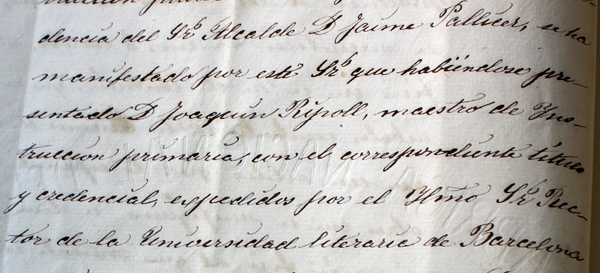 dencia del Sr. Alcalde D. Jaime Pallicer, se ha
manifestado por este Sr. que habiéndose pre-
sentado D. Joaquin Ripoll, maestro de Yns-
truccion primaria, con el correspondiente titulo
y credencial, expedidos por el Ylmo Sr. Rec-
tor de la Universidad literaria de Barcelona